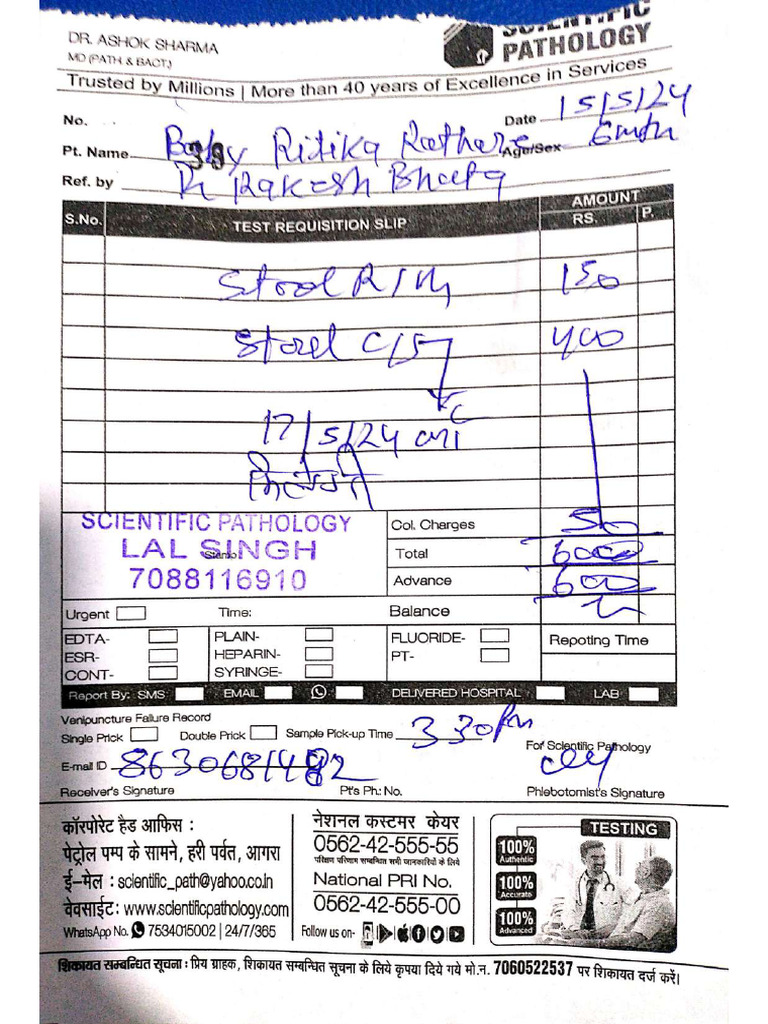 DR. ASHOK SHARMA
MD (PATH & BACT.)
SCIENTIFIC
PATHOLOGY
Trusted by Millions | More than 40 years of Excellence in Services
No.
Date 15/5/24
Pt. Name Baby Ritika Rathore Age/Sex 6mth
Ref. by Dr Rakesh Bhatia
S.No. TEST REQUISITION SLIP AMOUNT
RS. P.
Stool R/M 150
Stool C/S 400
17/5/24
Col. Charges 50
SCIENTIFIC PATHOLOGY
LAL SINGH
Stamp
7088116910
Total 600
Advance 600
Urgent Time: Balance
EDTA- PLAIN- FLUORIDE- Repoting Time
ESR- HEPARIN- PT-
CONT- SYRINGE-
Report By: SMS EMAIL DELIVERED HOSPITAL LAB
Venipuncture Failure Record
Single Prick Double Prick Sample Pick-up Time 3 30 pm
For Scientific Pathology
E-mail ID
Receiver's Signature Pt's Ph.: No. Phlebotomist's Signature
कॉरपोरेट हैड आफिस :
पेट्रोल पम्प के सामने, हरी पर्वत, आगरा
ई-मेल : scientific_path@yahoo.co.in
वेवसाईट: www.scientificpathology.com
WhatsApp No. 7534015002 | 24/7/365
नेशनल कस्टमर केयर
0562-42-555-55
परिक्षण परिणाम सम्बन्धित सभी जानकारीयों के लिये
National PRI No.
0562-42-555-00
Follow us on-
TESTING
100%
Authentic
100%
Accurate
100%
Advanced
शिकायत सम्बन्धित सूचना : प्रिय ग्राहक, शिकायत सम्बन्धित सूचना के लिये कृपया दिये गये मो.न. 7060522537 पर शिकायत दर्ज करें।